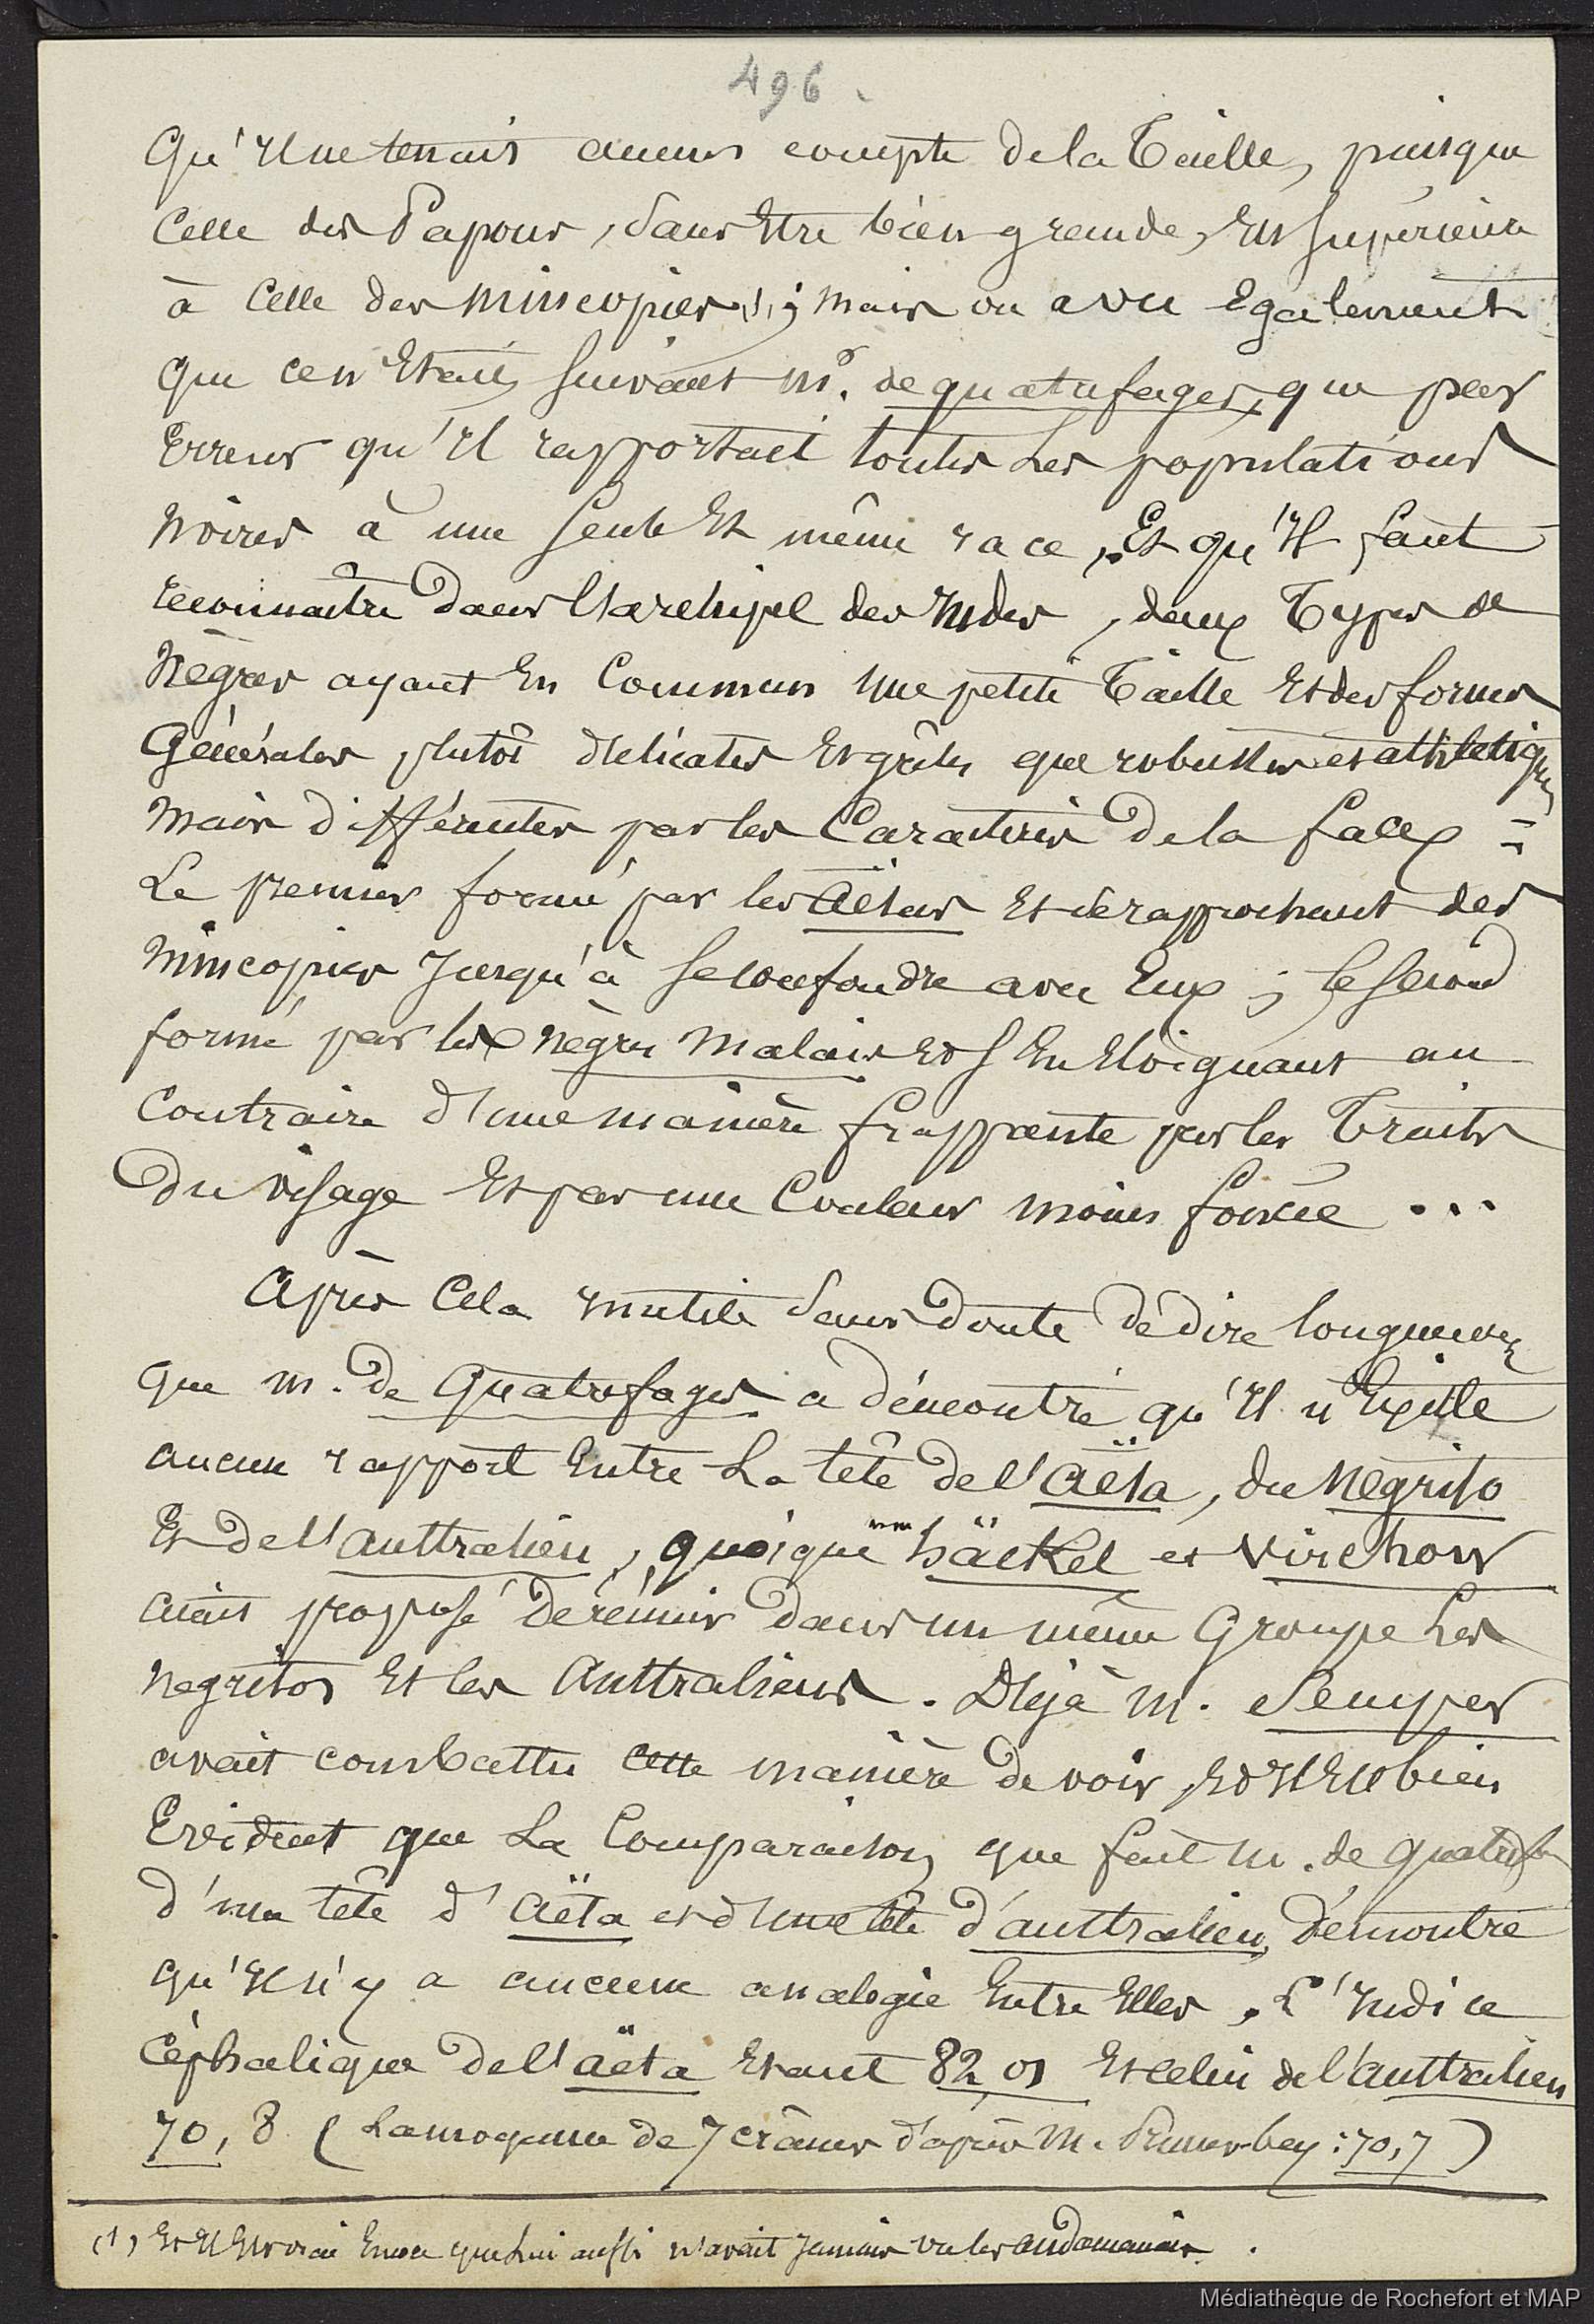 496.
qu'il ne tenait aucun compte de la Taille, puisque
celle des Papous, sans être bien grande, est supérieure
à celle des Mincopies (1); mais on a vu également
que ce n'était, suivant Mr. de quatrefages, que par
erreur qu'il rapportait toutes les populations
noires à une seule et même race, et qu'il faut
reconnaitre dans l'archipel des Indes, deux Types de
Nègres ayant en commun une petite Taille et des formes
Générales plutôt délicates et grêles que robustes et athlétiques
mais différentes par les Caractères de la face =
Le premier formé par les Aëtas et se rapprochant des
Mincopies jusqu'à se confondre avec Eux ; le second
formé par les nègres Malais et s'en éloignant au
contraire d'une manière frappante par les Traits
du visage et par une Couleur moins foncée ...
Après Cela inutile sans doute de dire longuement
que M. de Quatrefages a démontré qu'il n'Existe
aucun rapport entre la tête de l'aëta, du Négrito
Et de l'australien, quoique häckel et Virchow
aient proposé de réunir dans un même Groupe les
Negritos et les Australiens. Déjà M. Semper
avait combattu cette manière de voir, et il est bien
Evident que la Comparaison que fait M. de quatref
d'une tête d'aëta et d'une tête d'australien, démontre
qu'il n'y a aucune analogie entre elles, L'Indice
Céphalique de l'aëta étant 82,01 et celui de l'australien
70,8 (La moyenne de 7 crânes d'après M. Pruner-bey : 70,7)
(1) Et il est vrai que lui aussi n'avait jamais vu les andamanais.
Médiathèque de Rochefort et MAP